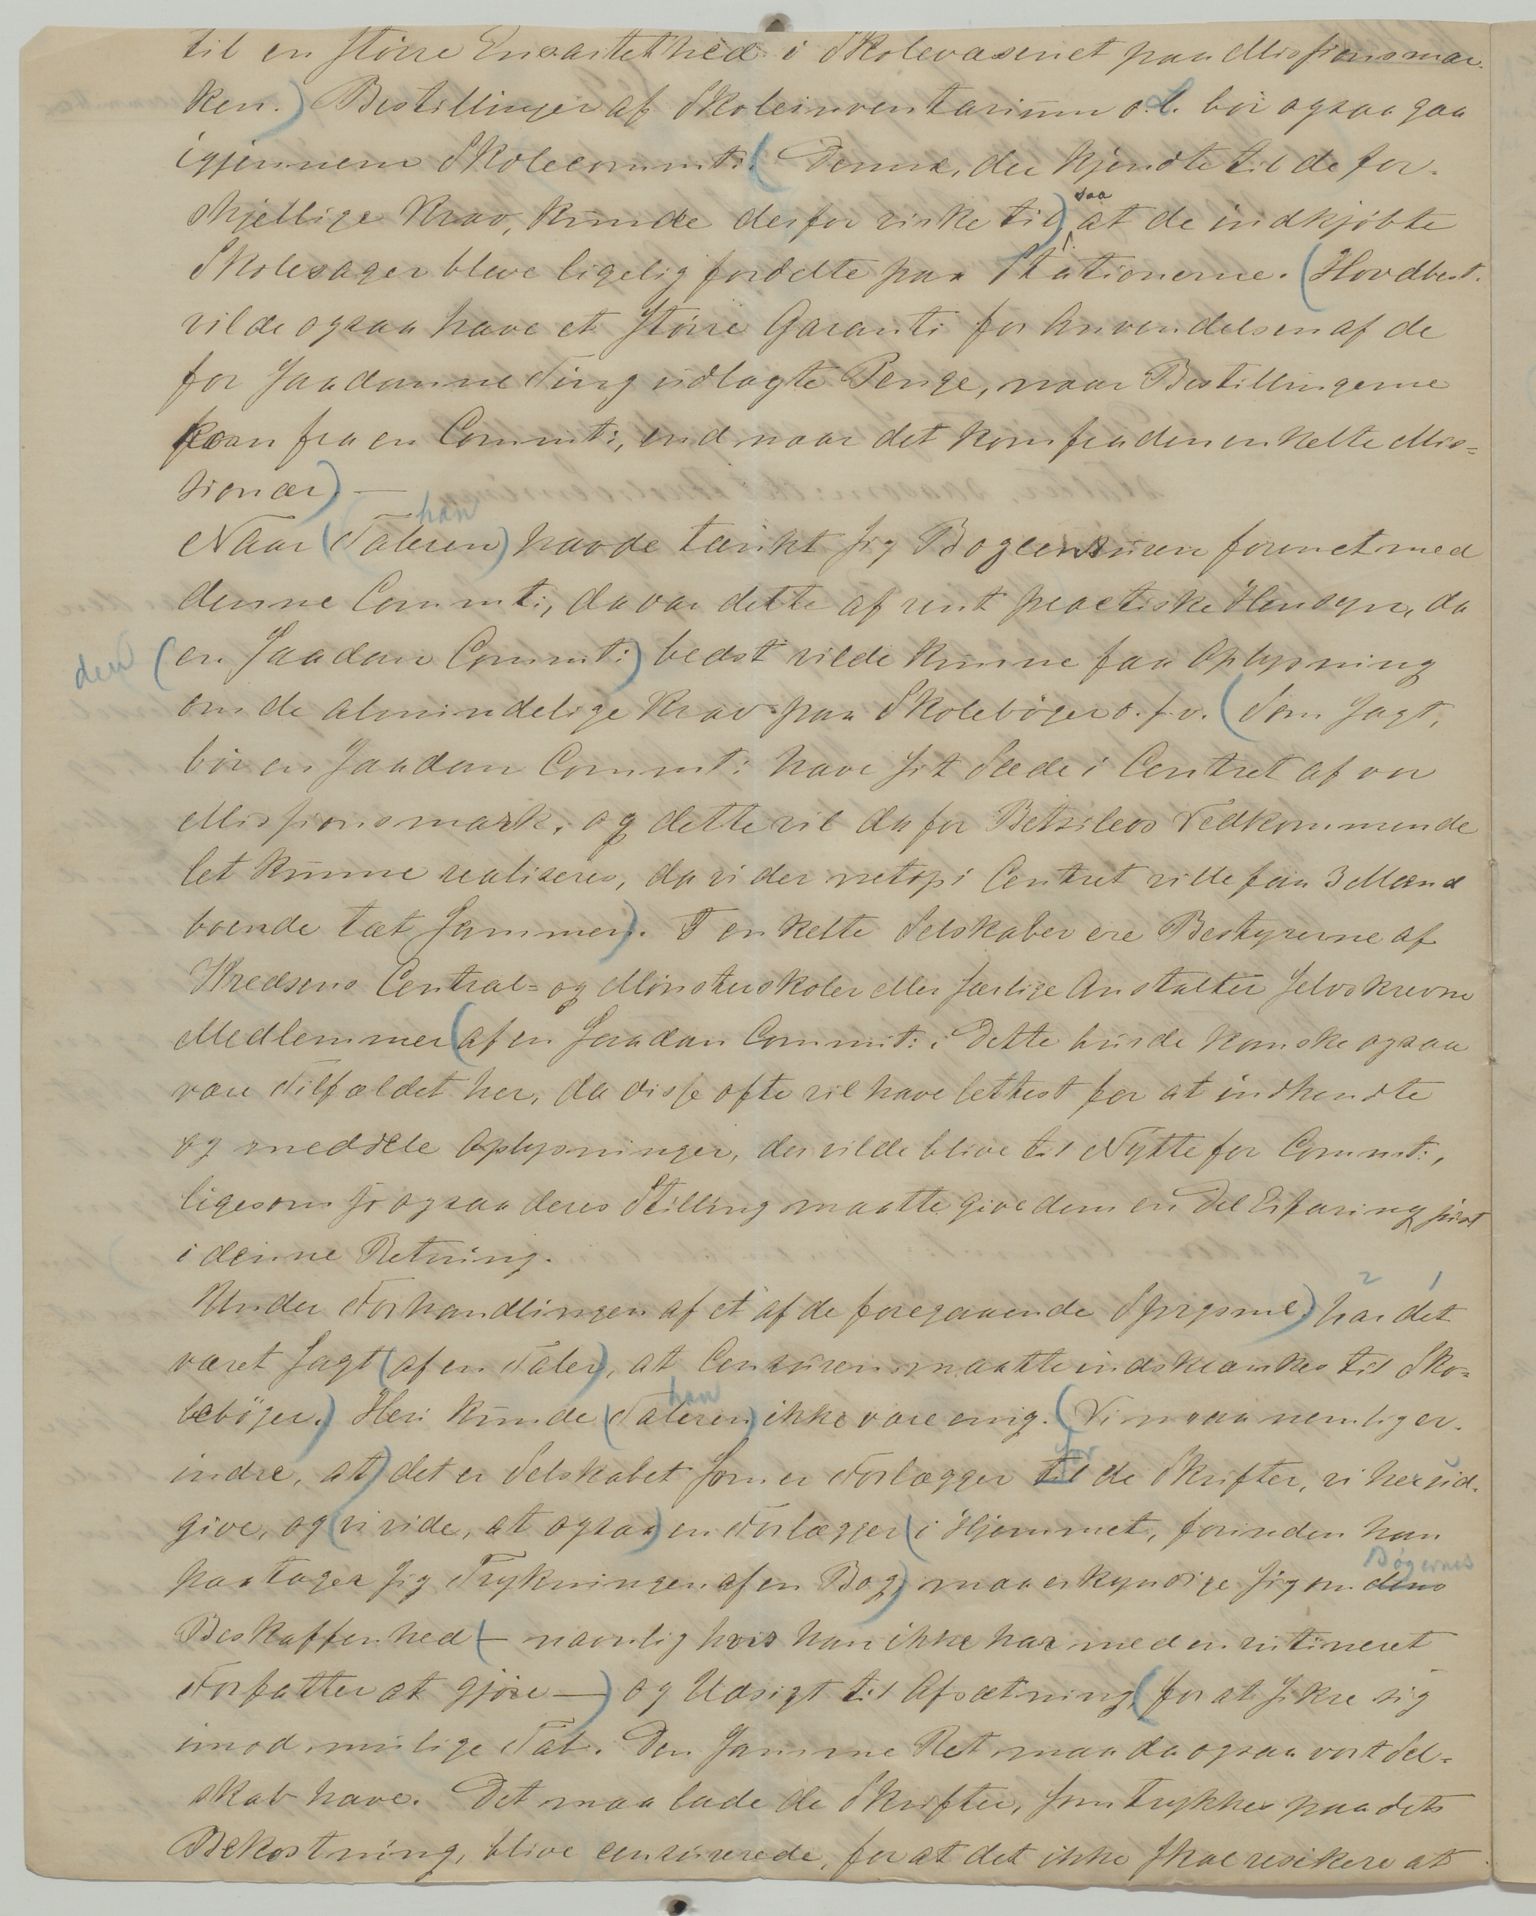 til en større Ensartethed i Skolevæsenet paa Missionsmar-
ken.) Bestillinger af Skoleinventarium o.l. bør ogsaa gaa
igjennem Skolecommt:( Denne, der kjendte til de for-
skjellige Krav, kunde derfor virke til) saa at de indkjøbte
Skolesager bleve ligelig fordelte paa Stationerne. (Hovdbest.
vilde ogsaa have et større Garanti for Anvendelsen af de
for saadanne Ting udlagte Penge, naar Bestillingerne
kom fra en Commt:, end naar det kom fra den enkelte Mis-
sionær) —
Naar (Taleren) han havde tænkt sig Bogcensuren forenet med
denne Commt:, da var dette af rent practiske Hensyn, da
den (en saadan Commt:) bedst vilde kunne faa Oplysning
om de almindelige Krav paa Skolebøger o.s.v. (Som sagt,
bør en saadan Commt: have sit Sæde i Centret af vor
Missionsmark, og dette vil da for Betsileos Vedkommende
let kunne realiseres, da vi der netop i Centret ville faa 3 Mænd
boende tæt sammen). I enkelte Selskaber ere Bestyrerne af
Kredsens Central- og Mønsterskoler eller særlige Anstalter selvskrevne
Medlemmer (af en saadan Commt: Dette burde kanske ogsaa
være Tilfældet her, da disse ofte vil have lettest for at indhente
og meddele Oplysninger, der vilde blive til Nytte for Commt:,
ligesom jo ogsaa deres Stilling maatte give dem en Del Erfaring just
i denne Retning.
Under Forhandlingen af et af de foregaaende Sprgsml.) har 2 det 1
været sagt (af en Taler), at Censuren maatte indskrænkes til Sko-
lebøger.) Heri kunde (Taleren) han ikke være enig. (Vi maa nemlig er-
indre, at) det er Selskabet som er Forlægger til for de Skrifter, vi her ud-
give, og (vi vide, at ogsaa) en Forlægger (i Hjemmet, forinden han
paatager sig Trykningen af en Bog) maa erkyndige sig om dens Bøgernes
Beskaffenhed (— navnlig hvis han ikke har med en rutineret
Forfatter at gjøre —) og Udsigt til Afsætning (for at sikre sig
imod mulige Tab. Den samme Ret maa da ogsaa vort Sel-
skab have. Det maa lade de Skrifter, som trykkes paa dets
Bekostning, blive censurerede, for at det ikke skal risikere at